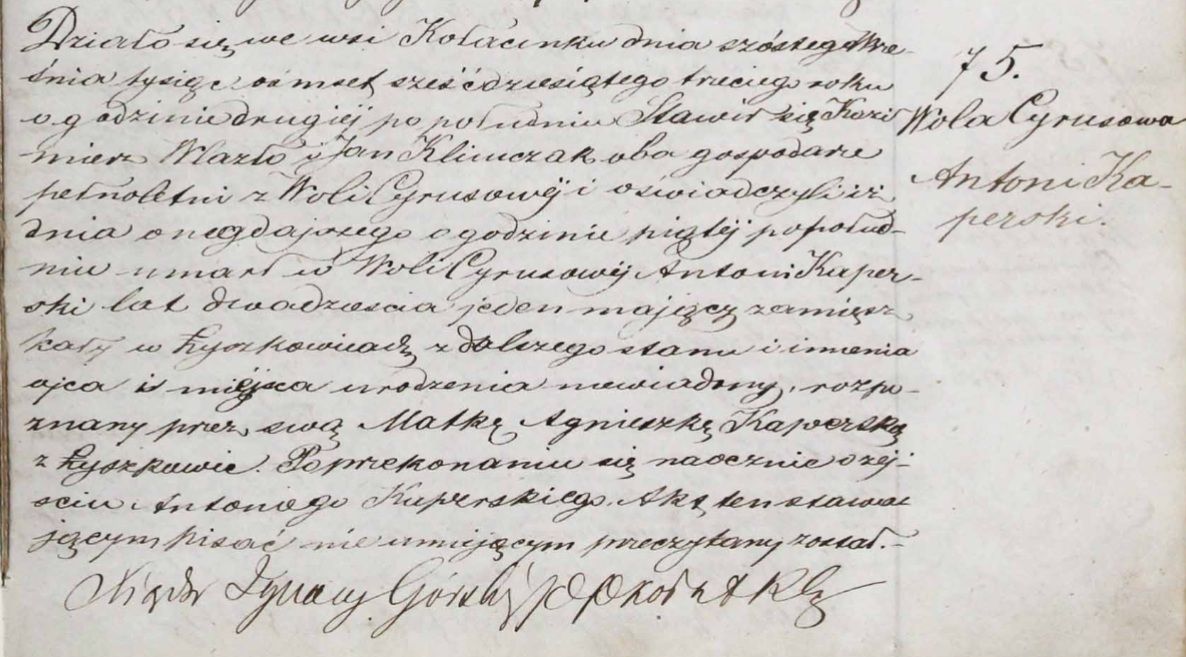 Działo się we wsi Kołacinku dnia szóstego Wrze-
śnia tysiąc ośmset sześćdziesiątego trzeciego roku
o godzinie drugiéj po południu Stawił się Kazi
mierz Wlazło i Jan Klimczak oba gospodarze
pełnoletni z Woli Cyrusowéj i oświadczyli iż
dnia onegdajszego o godzinie piątéj popołud-
niu umarł w Woli Cyrusowéj Antoni Kaper-
ski lat dwadzieścia jeden mający zamiesz
kały w Łyszkowicach z dalszego stanu i imienia
ojca i miejsca urodzenia niewiadomy, rozpo-
znany przez swą Matkę Agnieszkę Kaperską
z Łyszkowic. Poprzekonaniu się naocznie o zéj-
ściu Antoniego Kaperskiego, Akt ten stawa
jącym pisać nie umiejącym przeczytany został.-
Ksiądz Ignacy Górski
75.
Wola Cyrusowa
Antoni Ka-
perski.